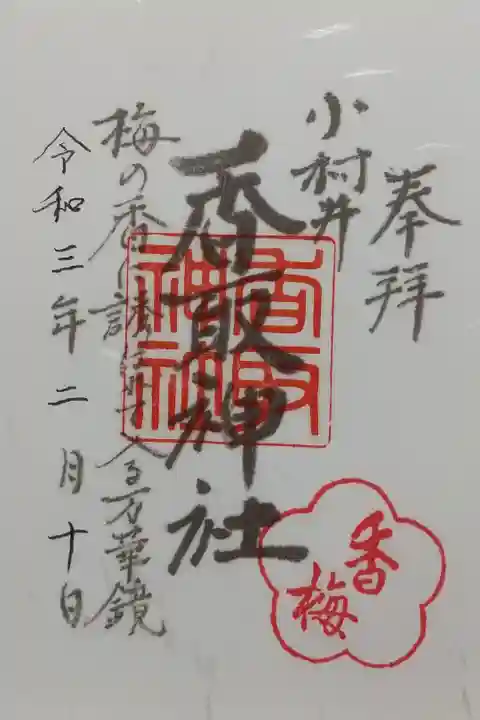 奉拝
小村井
香取神社
梅の香に誘 入る万華鏡
令和三年二月十日
香取神社
香梅